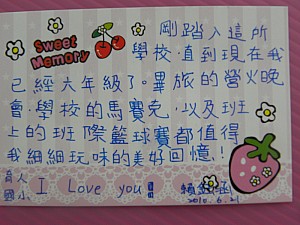 Sweet
Memory
剛踏入這所
學校,直到現在我
已經六年級了。畢旅的營火晚
會、學校的馬賽克,以及班
上的班際籃球賽都值得
我細細玩味的美好回憶!!
育人
國小 I Love you
2010.6.21